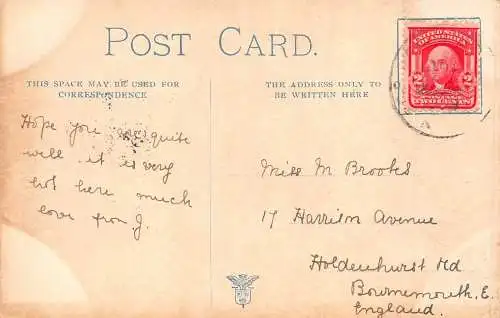 POST CARD.
THIS SPACE MAY BE USED FOR
CORRESPONDENCE
THE ADDRESS ONLY TO
BE WRITTEN HERE
UNITED STATES
OF AMERICA
2 2
TWO CENTS
Hope you are quite
well it is very
hot here much
love from J.
Miss M Brooks
17 Harrison Avenue
Holdenhurst Rd
Bournemouth. E.
England.